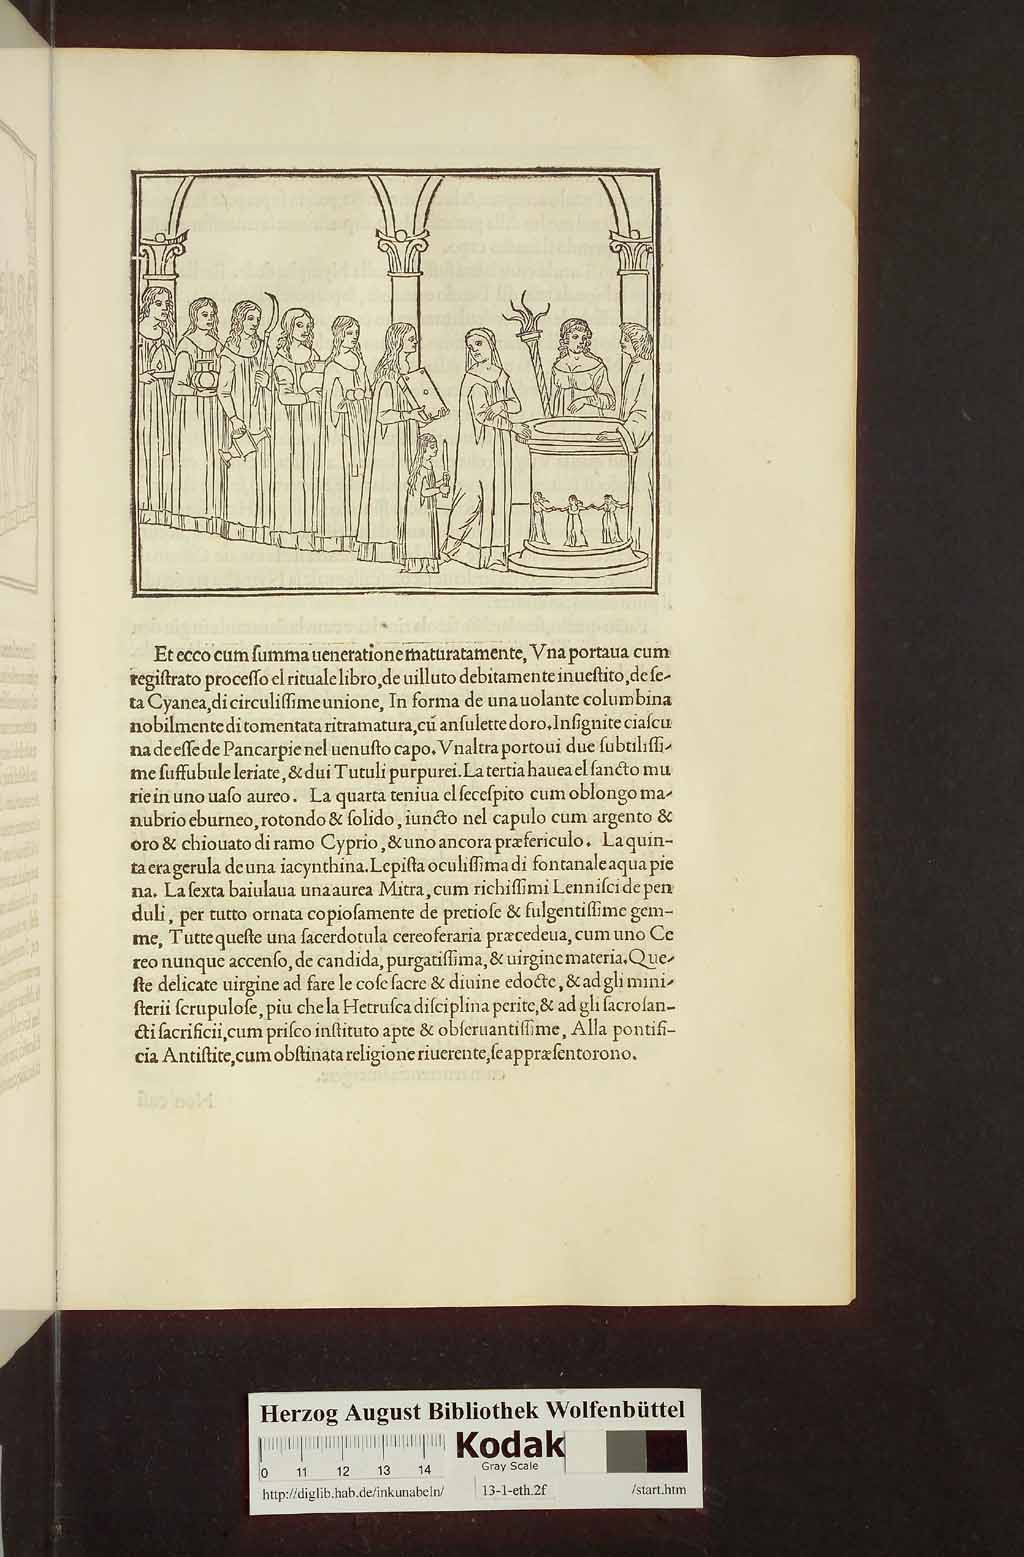 Et ecco cum ſumma ueneratione maturatamente, Vna portaua cum
regiſtrato proceſſo el rituale libro, de uilluto debitamente inueſtito, de ſe-
ta Cyanea, di circuliſſime unione, In forma de una uolante columbina
nobilmente di tomentata ritramatura, cū anſulette doro. Inſignite ciaſcu
na de eſſe de Pancarpie nel uenuſto capo. Vnaltra portoui due ſubtiliſſi-
me ſuffubule leriate, & dui Tutuli purpurei. La tertia hauea el ſancto mu
rie in uno uaſo aureo. La quarta teniua el ſeceſpito cum oblongo ma-
nubrio eburneo, rotondo & ſolido, iuncto nel capulo cum argento &
oro & chiouato di ramo Cyprio, & uno ancora præfericulo. La quin-
ta era gerula de una iacynthina. Lepiſta oculiſſima di fontanale aqua pie
na. La ſexta baiulaua una aurea Mitra, cum richiſſimi Lenniſci de pen
duli, per tutto ornata copioſamente de pretioſe & fulgentiſſime gem-
me, Tutte queſte una ſacerdotula cereoferaria præcedeua, cum uno Ce
reo nunque accenſo, de candida, purgatiſſima, & uirgine materia. Que-
ſte delicate uirgine ad fare le coſe ſacre & diuine edocte, & ad gli mini-
ſterii ſcrupuloſe, piu che la Hetruſca diſciplina perite, & ad gli ſacroſan-
cti ſacrificii, cum priſco inſtituto apte & obſeruantiſſime, Alla pontifi-
cia Antiſtite, cum obſtinata religione riuerente, ſe appræſentorono.
Herzog August Bibliothek Wolfenbüttel
0 11 12 13 14
Kodak
Gray Scale
http://diglib.hab.de/inkunabeln/ 13-1-eth.2f /start.htm